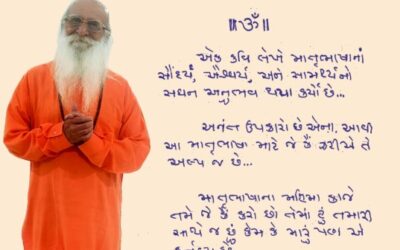 ॥ૐ॥
એક કવિ લેખે માતૃભાષાનાં
સૌંદર્ય, ઐશ્વર્ય, અને સામર્થ્યનો
સઘન અનુભવ થયા કર્યો છે...
અનંત ઉપકારો છે એના. આથી
આ માતૃભાષા માટે જે કૈં કરીએ તે
અલ્પ જ છે...
માતૃભાષાના મહિમા કાજે
તમે જે કૈં કરો છો તેમાં હું તમારી
સાથે જ છું કેમ કે મારું પણ એ